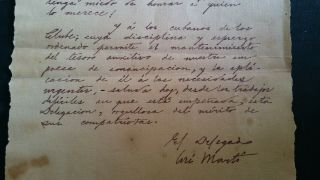 tenga miedo de honrar a quien
lo merece!
Y á los cubanos de los
Clubs, cuya disciplina y esfuerzo
ordenado permite el mantenimiento
del tesoro auxiliar de nuestra em
presa de emancipacion, y la apli-
cacion de él a las necesidades
urgentes, - saluda hoy, desde los trabajos
difíciles en que está empeñada, esta
Delegacion, orgullosa del mérito de
sus compatriotas.
El Delegado
José Martí